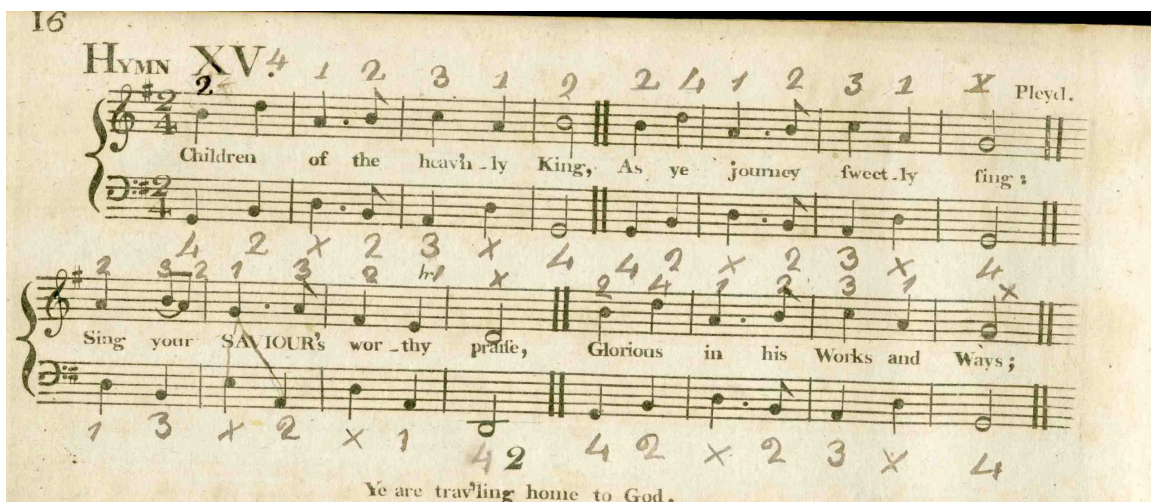 16
HYMN XV. 4
2 1 2 3 1 2 2 4 1 2 3 1 X Pleyel.
2
4
Children of the heav'n-ly King, As ye journey ſweet-ly ſing:
2
4
4 2 x 2 3 x 4 4 2 x 2 3 x 4
2 3 2 1 3 2 1 x 2 4 1 2 3 1 x
Sing your SAVIOUR's wor-thy praiſe, Glorious in his Works and Ways;
1 3 x 2 x 1 4 2 4 2 x 2 3 x 4
Ye are trav'ling home to God.